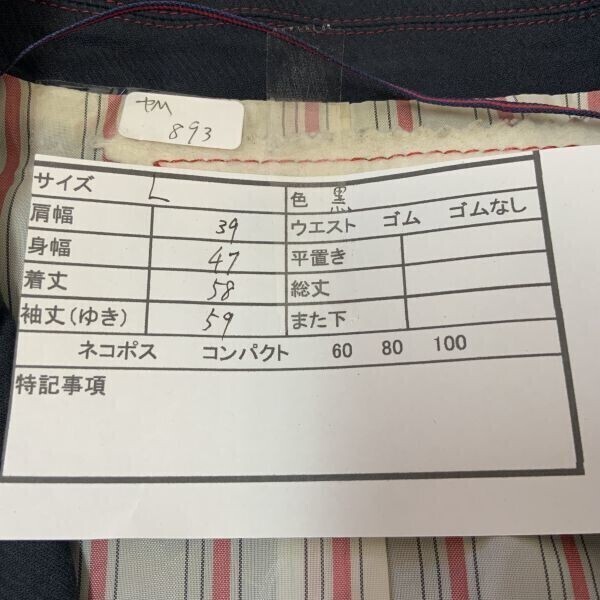 サイズ L 色 黒
肩幅 39 ウエスト ゴム ゴムなし
身幅 47 平置き
着丈 58 総丈
袖丈(ゆき) 59 また下
ネコポス コンパクト 60 80 100
特記事項
893